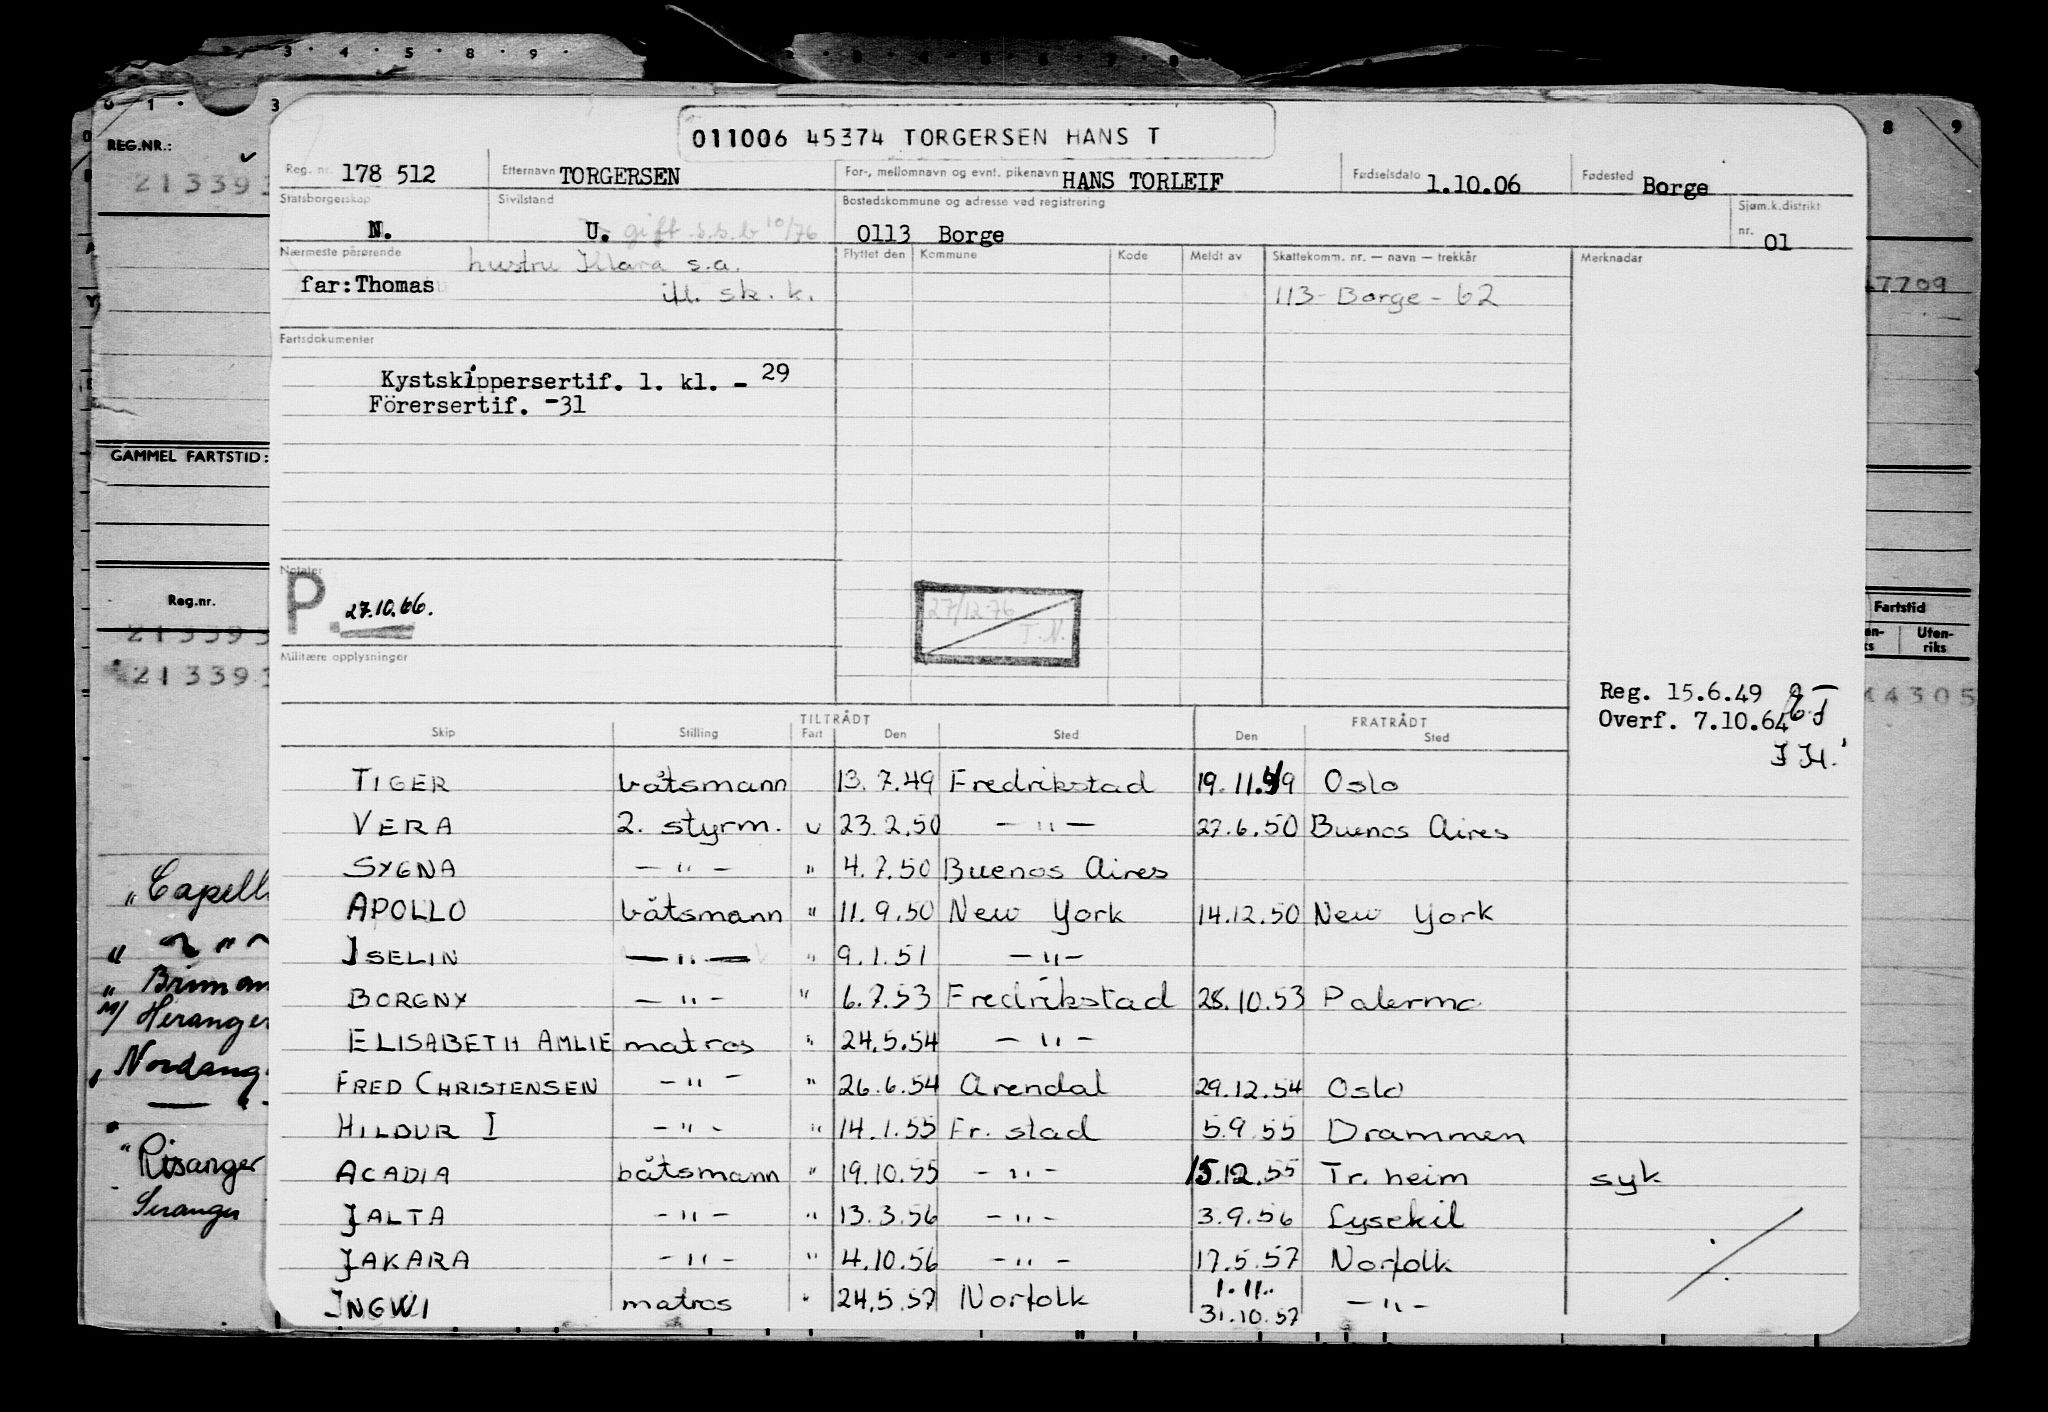 3 · 4 · 5 8 · 9 ·
0 1 · 3
8 9
REG.NR.:
213393
011006 45374 TORGERSEN HANS T
Reg. nr. 178 512 Etternavn TORGERSEN For-, mellomnavn og evnt. pikenavn HANS TORLEIF Fødselsdato 1.10.06 Fødested Borge
Statsborgerskap Sivilstand Bostedskommune og adresse ved registrering Sjøm.k.distrikt
N. U. gift s.s.b 10/76 0113 Borge nr. 01
Nærmeste pårørende hustru Klara s.a. Flyttet den Kommune Kode Meldt av Skattekomm. nr. — navn — trekkår Merknader
far: Thomas ifl. sk. k. 113 - Borge - 62 7709
Fartsdokumenter
Kystskippersertif. 1. kl. - 29
Förersertif. -31
GAMMEL FARTSTID:
Notater
P. 27.10.66. 27/12-76
T.N.
Reg.nr. Fartstid
213393 Uten-
riks
Militære opplysninger
213393 44305
Reg. 15.6.49
Overf. 7.10.64
TILTRÅDT FRATRÅDT
Skip Stilling Fart Den Sted Den Sted
TIGER båtsmann 13.7.49 Fredrikstad 19.11.49 Oslo
VERA 2. styrm. u 23.2.50 — " — 27.6.50 Buenos Aires
SYGNA — " — " 4.7.50 Buenos Aires
APOLLO båtsmann " 11.9.50 New York 14.12.50 New York
ISELIN — " — " 9.1.51 — " —
BORGNY — " — " 6.7.53 Fredrikstad 28.10.53 Palermo
ELISABETH AMLIE matros " 24.5.54 — " —
FRED CHRISTENSEN — " — " 26.6.54 Arendal 29.12.54 Oslo
HILDUR I — " — " 14.1.55 Fr. stad 5.9.55 Drammen
ACADIA båtsmann " 19.10.55 — " — 15.12.55 Tr. heim syk
JALTA — " — " 13.3.56 — " — 3.9.56 Lysekil
JAKARA — " — " 4.10.56 — " — 17.5.57 Norfolk
INGWI matros " 24.5.57 Norfolk 1.11.
31.10.57 — " —
" Capell
" Heranger
" Nordang
" Risanger
Seranger